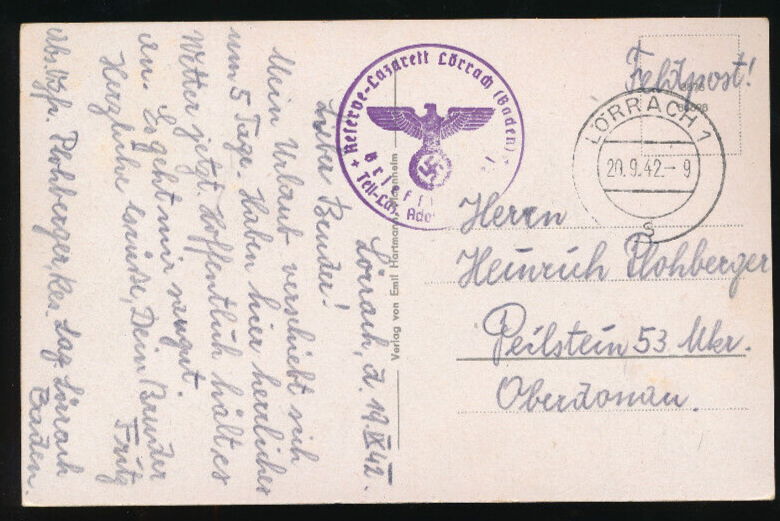 Feldpost!
LÖRRACH 1
20.9.42.-9
s
Reserve-Lazarett Lörrach (Baden)
Briefst
+ Teil-Laz. Ado
Verlag von Emil Hartmann, Mannheim
Herrn
Heinrich Plohberger
Peilstein 53 Mkr.
Oberdonau.
Lörrach, d. 19.IX.42.
Lieber Bruder!
Mein Urlaub verschiebt sich
um 5 Tage. Haben hier herrliches
Wetter jetzt. Hoffentlich hält es
an. Es geht mir saugut.
Herzliche Grüße, Dein Bruder
Fritz
Abs. Plohberger, Res. Laz. Lörrach
Baden